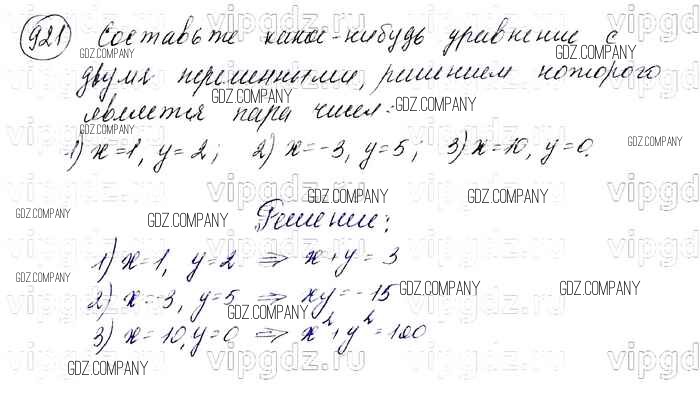 921) Составьте какое-нибудь уравнение с
двумя переменными, решением которого
является пара чисел:
1) x=1, y=2; 2) x=-3, y=5; 3) x=10, y=0.
Решение:
1) x=1, y=2 ⇒ x+y=3
2) x=-3, y=5 ⇒ xy=-15
3) x=10, y=0 ⇒ x²+y²=100
GDZ.COMPANY
vipgdz.ru